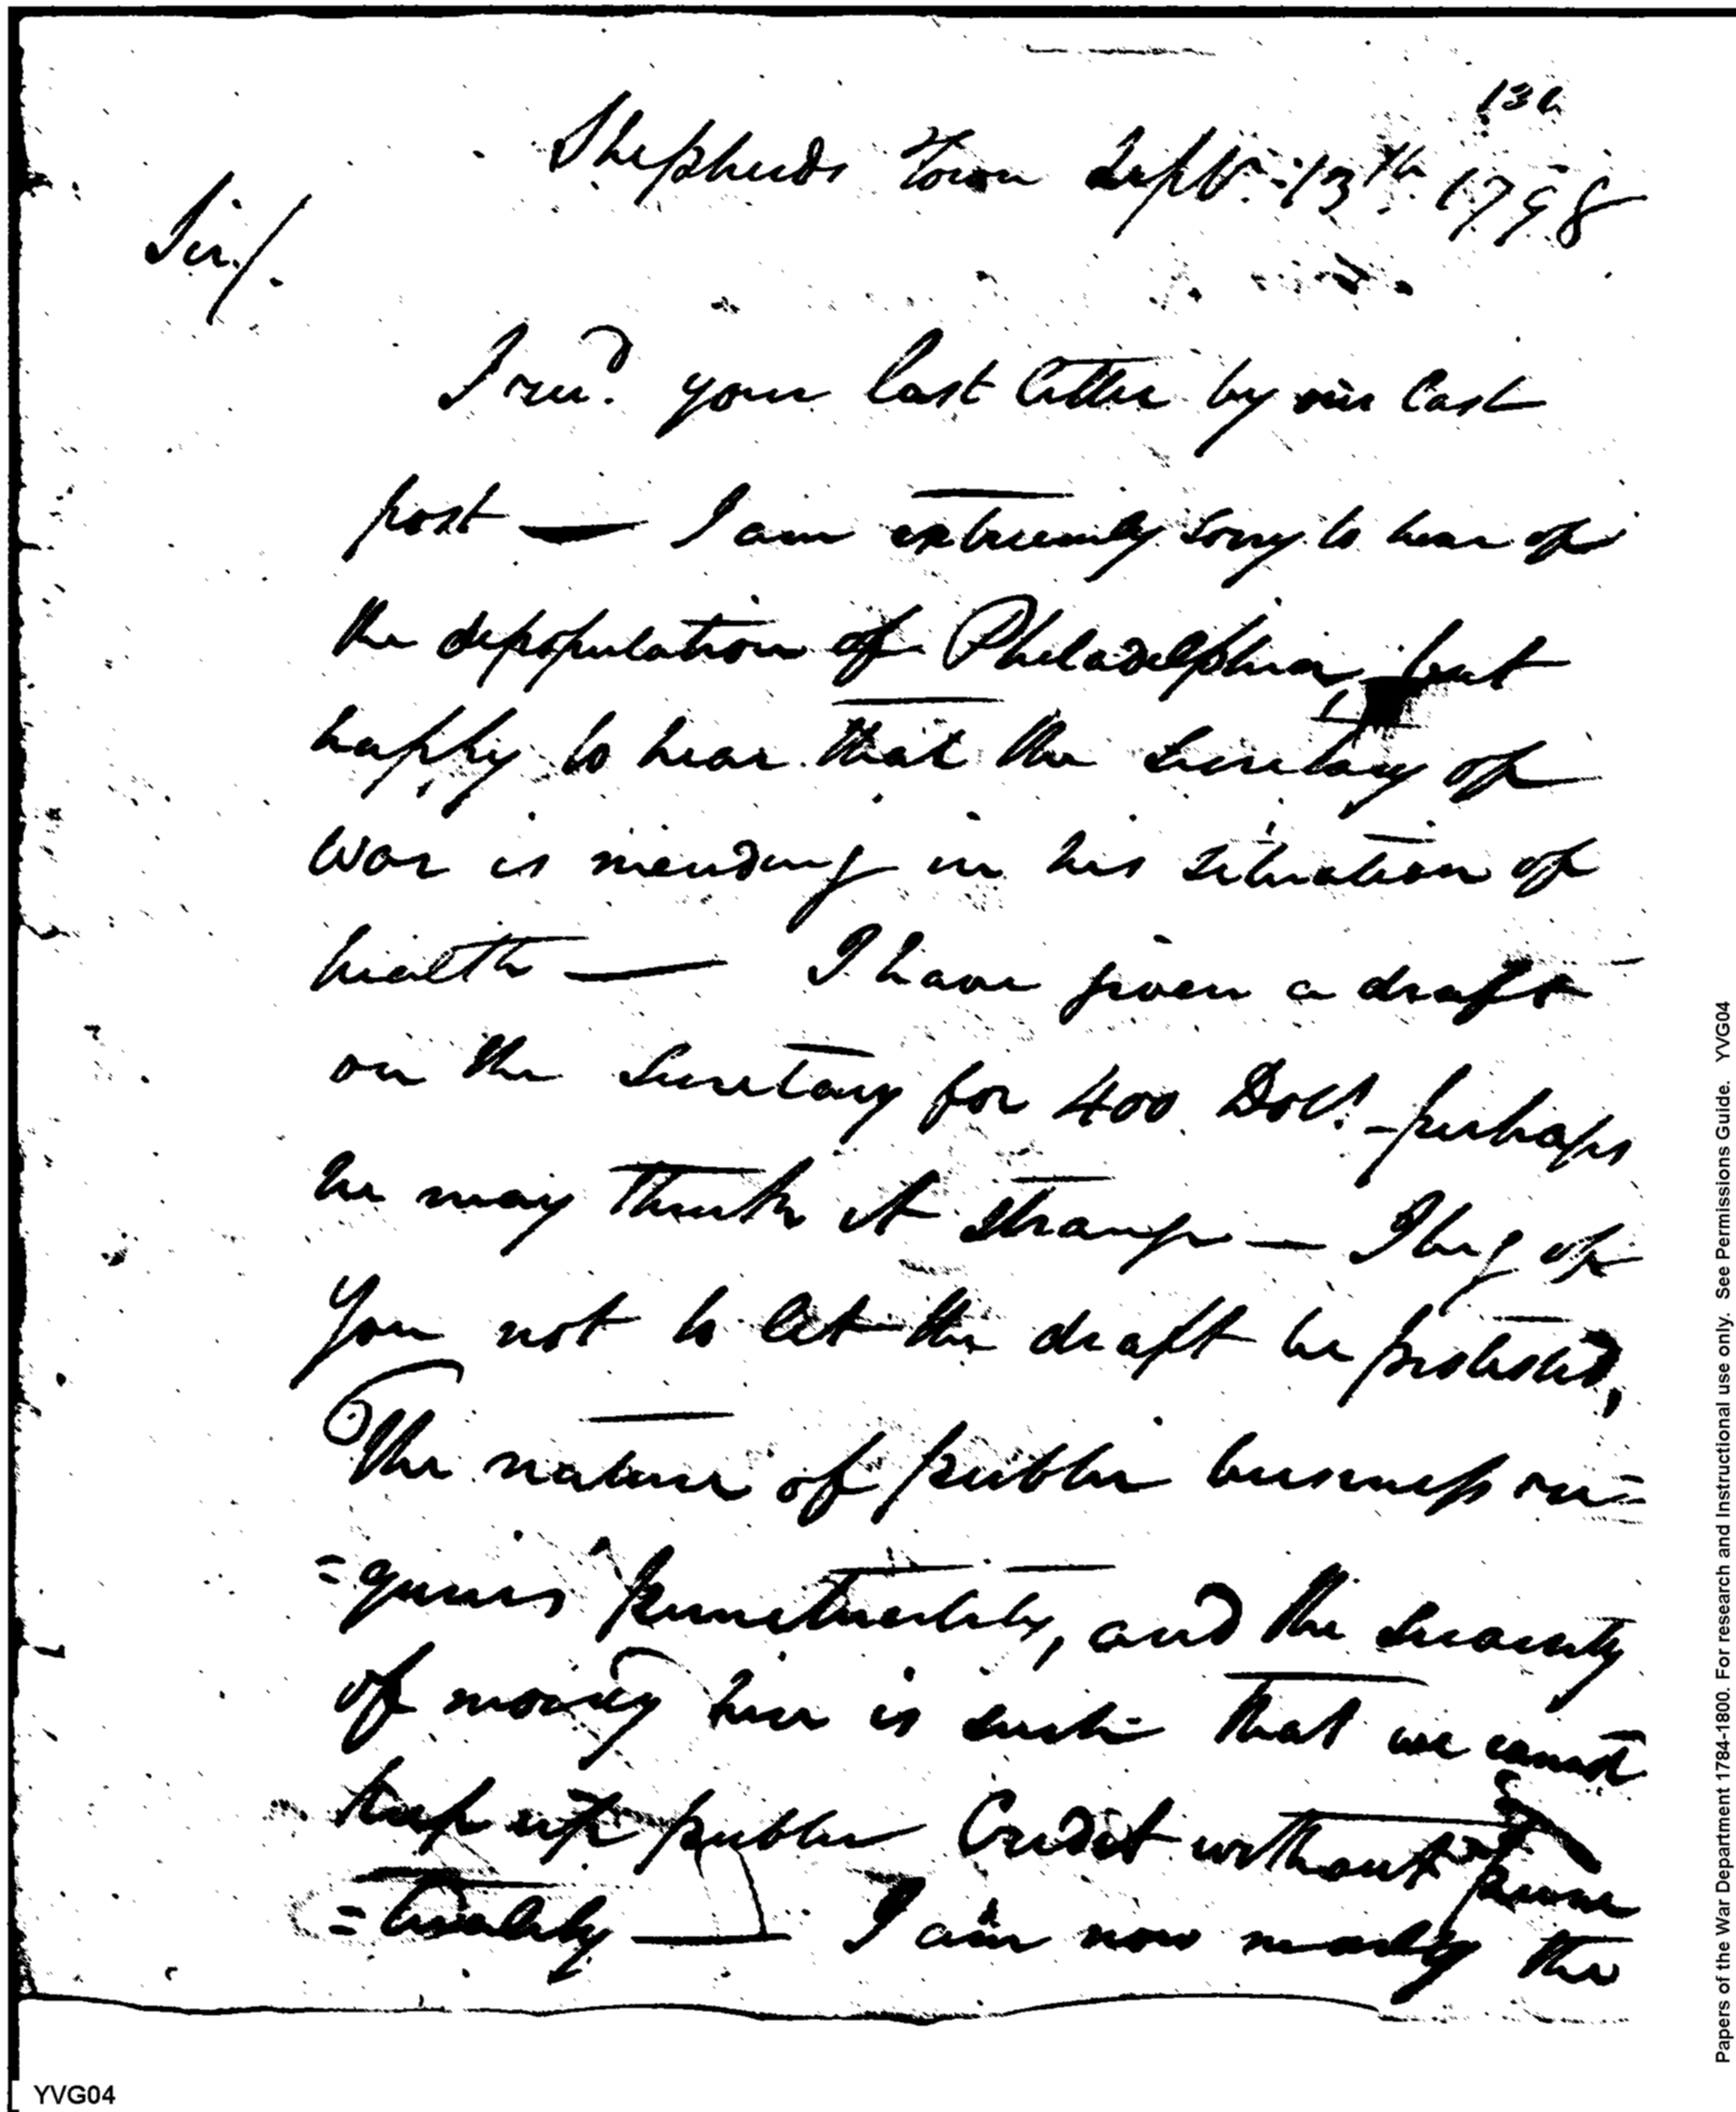 136
Shepherds Town Septr. 13th 1798
Sir/.
I recd. your last letter by our last
post — I am extremely sorry to hear of
the depopulation of Philadelphia, but
happy to hear that the Secretary of
War is mending in his situation of
health — I have given a draft
on the Secretary for 400 Dolls. – perhaps
he may think it strange — I beg of
you not to let the draft be protested,
The nature of public business re=
=quires punctuality, and the scarcity
of money here is such that we cannot
keep up public Credit without punc
=tuality — I am now nearly the
YVG04
Papers of the War Department 1784-1800. For research and Instructional use only. See Permissions Guide. YVG04